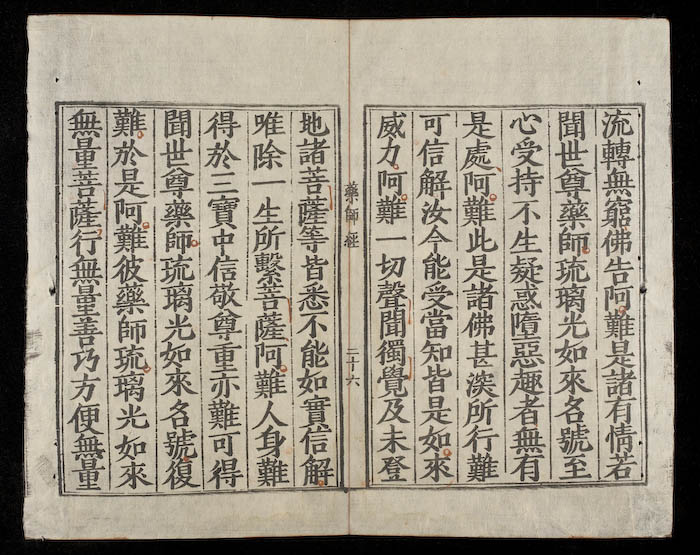 流轉無窮佛告阿難是諸有情若
聞世尊藥師琉璃光如來名號至
心受持不生疑惑墮惡趣者無有
是處阿難此是諸佛甚深所行難
可信解汝今能受當知皆是如來
威力阿難一切聲聞獨覺及未登
藥師經
二十六
地諸菩薩等皆悉不能如實信解
唯除一生所繫菩薩阿難人身難
得於三寶中信敬尊重亦難可得
聞世尊藥師琉璃光如來名號復
難於是阿難彼藥師琉璃光如來
無量菩薩行無量善巧方便無量